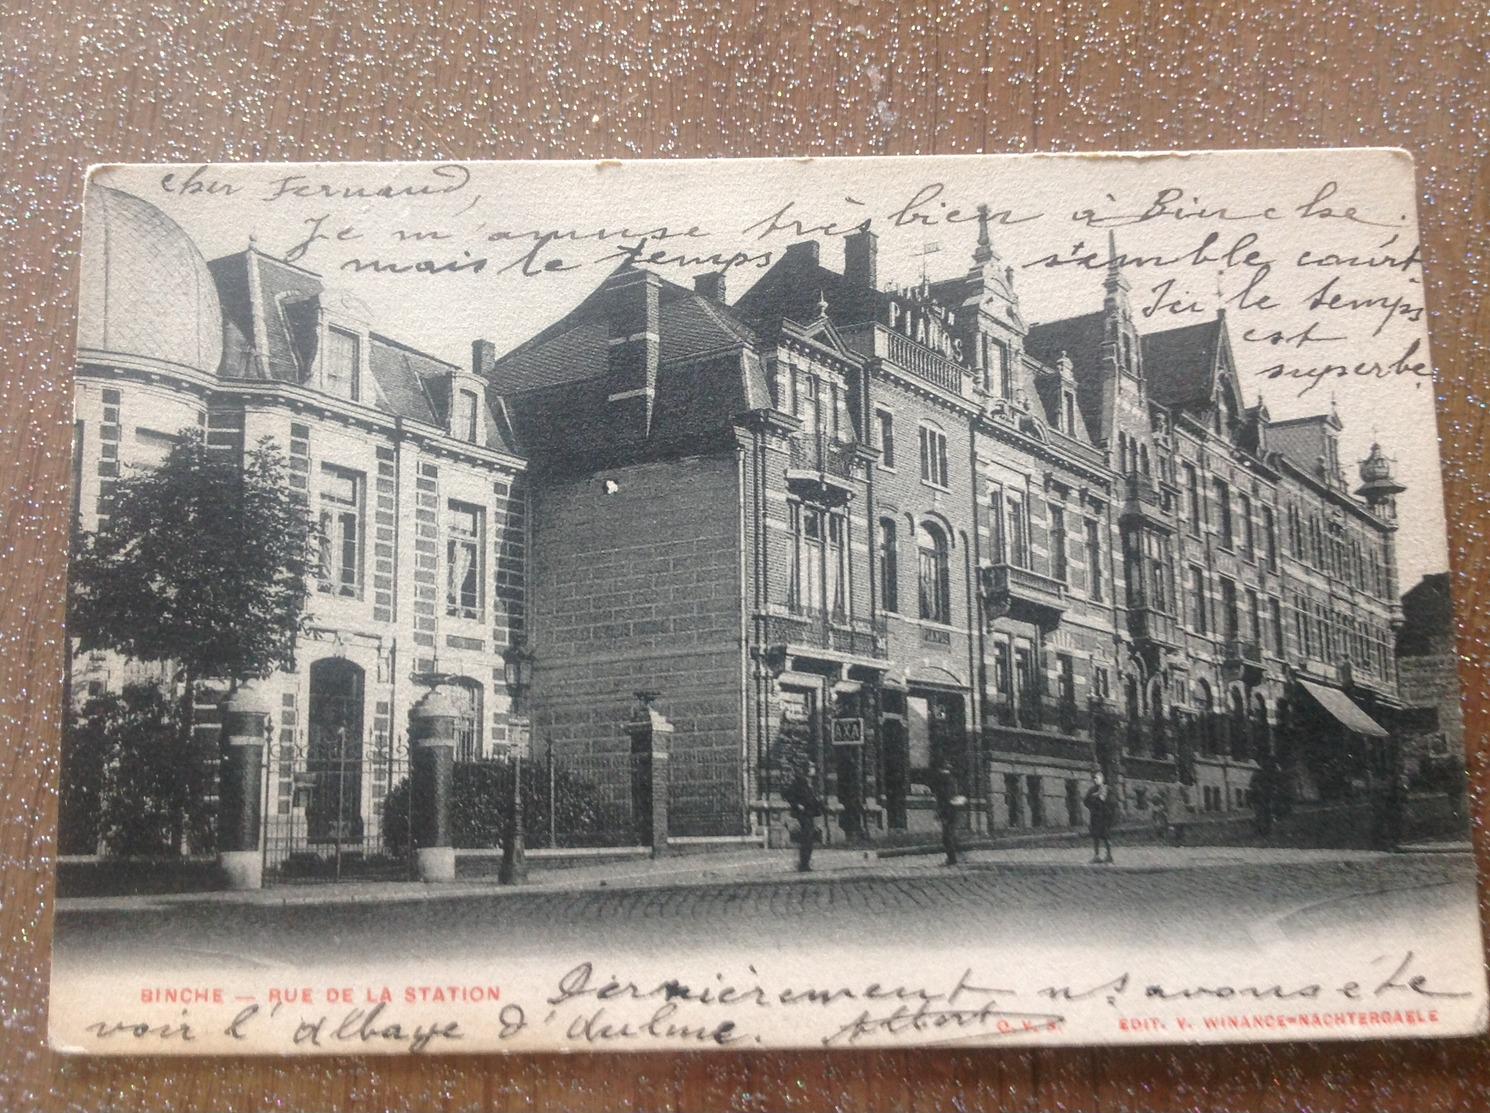 cher Fernand,
Je m'amuse très bien à Binche.
mais le temps semble court
Ici le temps
est
superbe
PIANOS
AXA
BINCHE — RUE DE LA STATION
Dernièrement ns avons été
voir l'abbaye d'Aulne. Albert
C. V. S.
EDIT. V. WINANCE=NACHTERGAELE